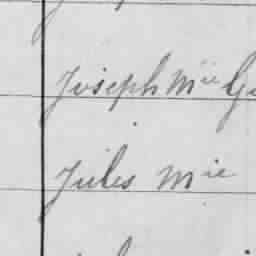 Joseph Mie
Jules Mie